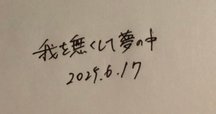 我を無くして夢の中
2024.6.17